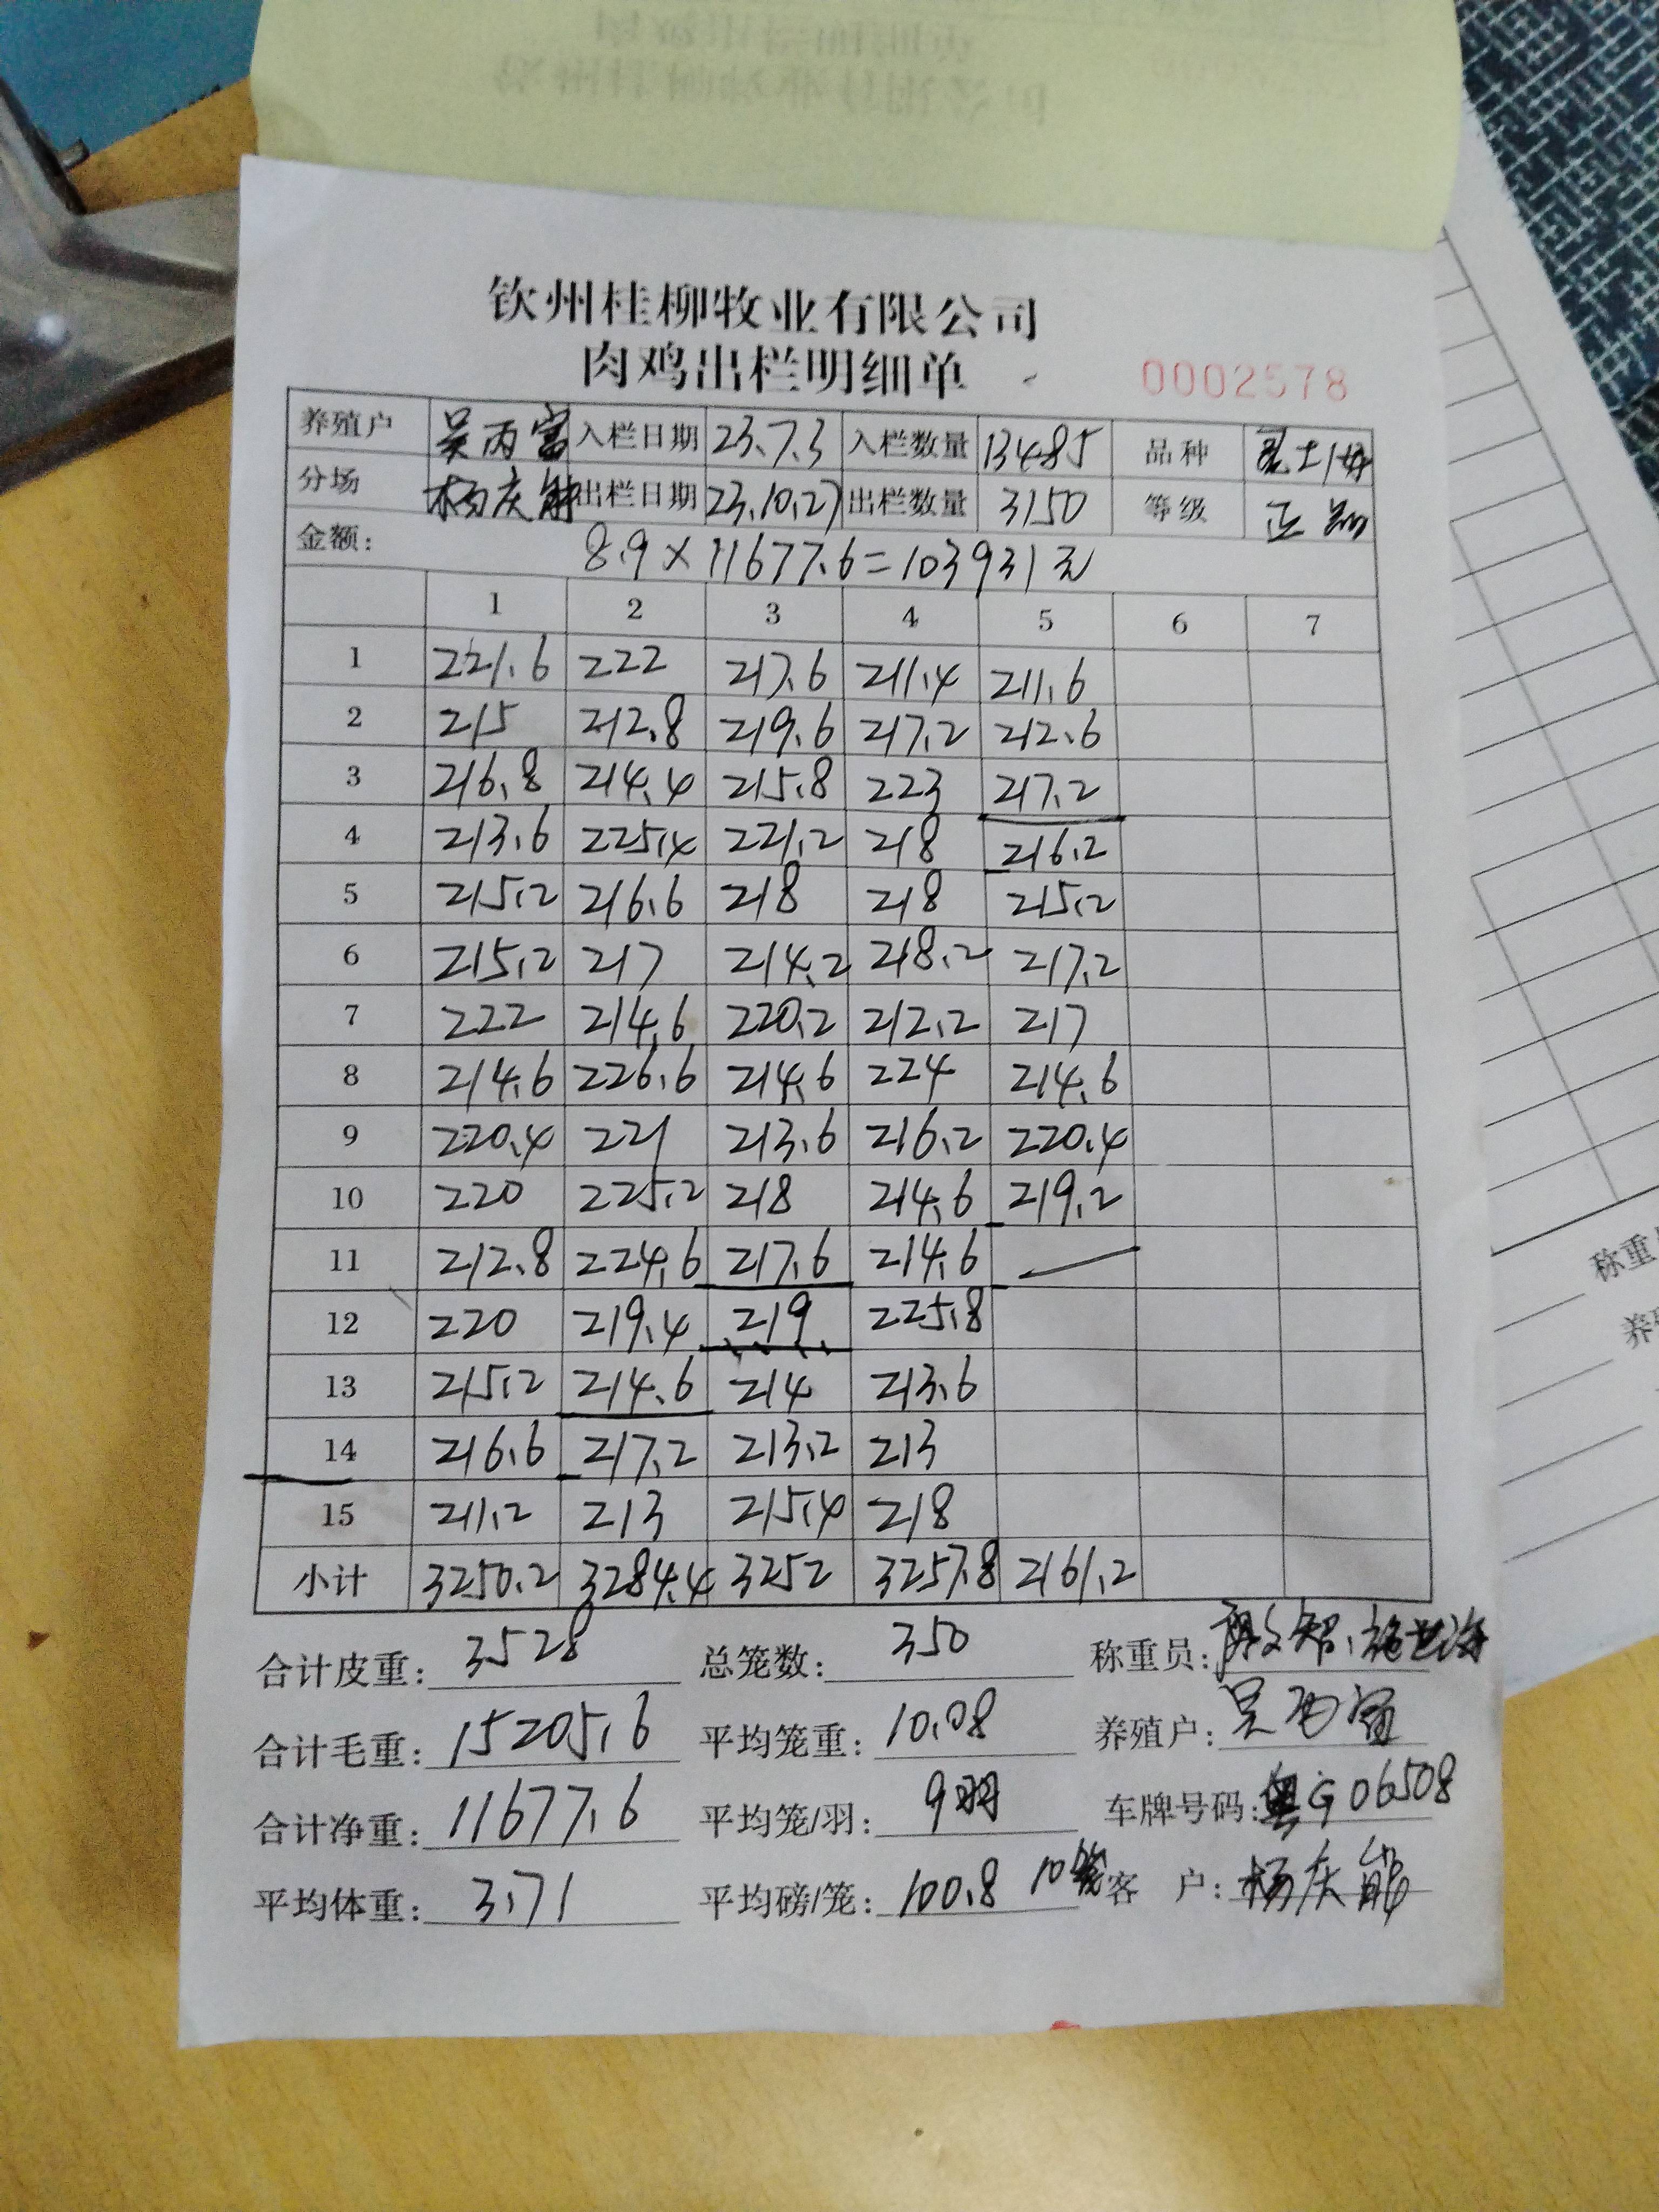 钦州桂柳牧业有限公司
肉鸡出栏明细单
0002578
养殖户 吴丙富 入栏日期 23.7.3 入栏数量 13485 品种
分场 杨庆能 出栏日期 23.10.27 出栏数量 3150 等级 正品
金额: 8.9×11677.6=103931元
1 2 3 4 5 6 7
1 221.6 222 217.6 211.4 211.6
2 215 212.8 219.6 217.2 212.6
3 216.8 214.4 215.8 223 217.2
4 213.6 225.4 221.2 218 216.2
5 215.2 216.6 218 218 215.2
6 215.2 217 214.2 218.2 217.2
7 222 214.6 220.2 212.2 217
8 214.6 226.6 214.6 224 214.6
9 220.4 221 213.6 216.2 220.4
10 220 225.2 218 214.6 219.2
11 212.8 224.6 217.6 214.6
12 220 219.4 219 225.8
13 215.2 214.6 214 213.6
14 216.6 217.2 213.2 213
15 211.2 213 215.4 218
小计 3250.2 3284.4 3252 3257.8 2161.2
合计皮重: 3528 总笼数: 350 称重员:
合计毛重: 15205.6 平均笼重: 10.08 养殖户: 吴丙富
合计净重: 11677.6 平均笼/羽: 9羽 车牌号码: 粤G06508
平均体重: 3.71 平均磅/笼: 100.8 10笼 客 户: 杨庆能
称重
养